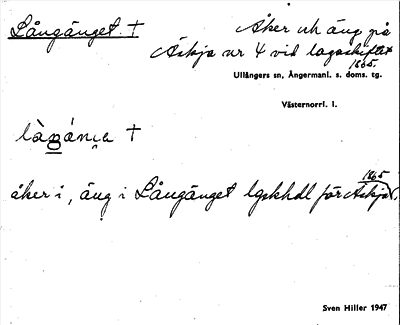 Långänget. †
Åker och äng på
Äskja nr 4 vid lagaskiftet
1865.
Ullångers sn, Ångermanl. s. doms. tg.
Västernorrl. l.
†
åker i, äng i Långänget lgskhdl för Äskja
1865
Sven Hiller 1947